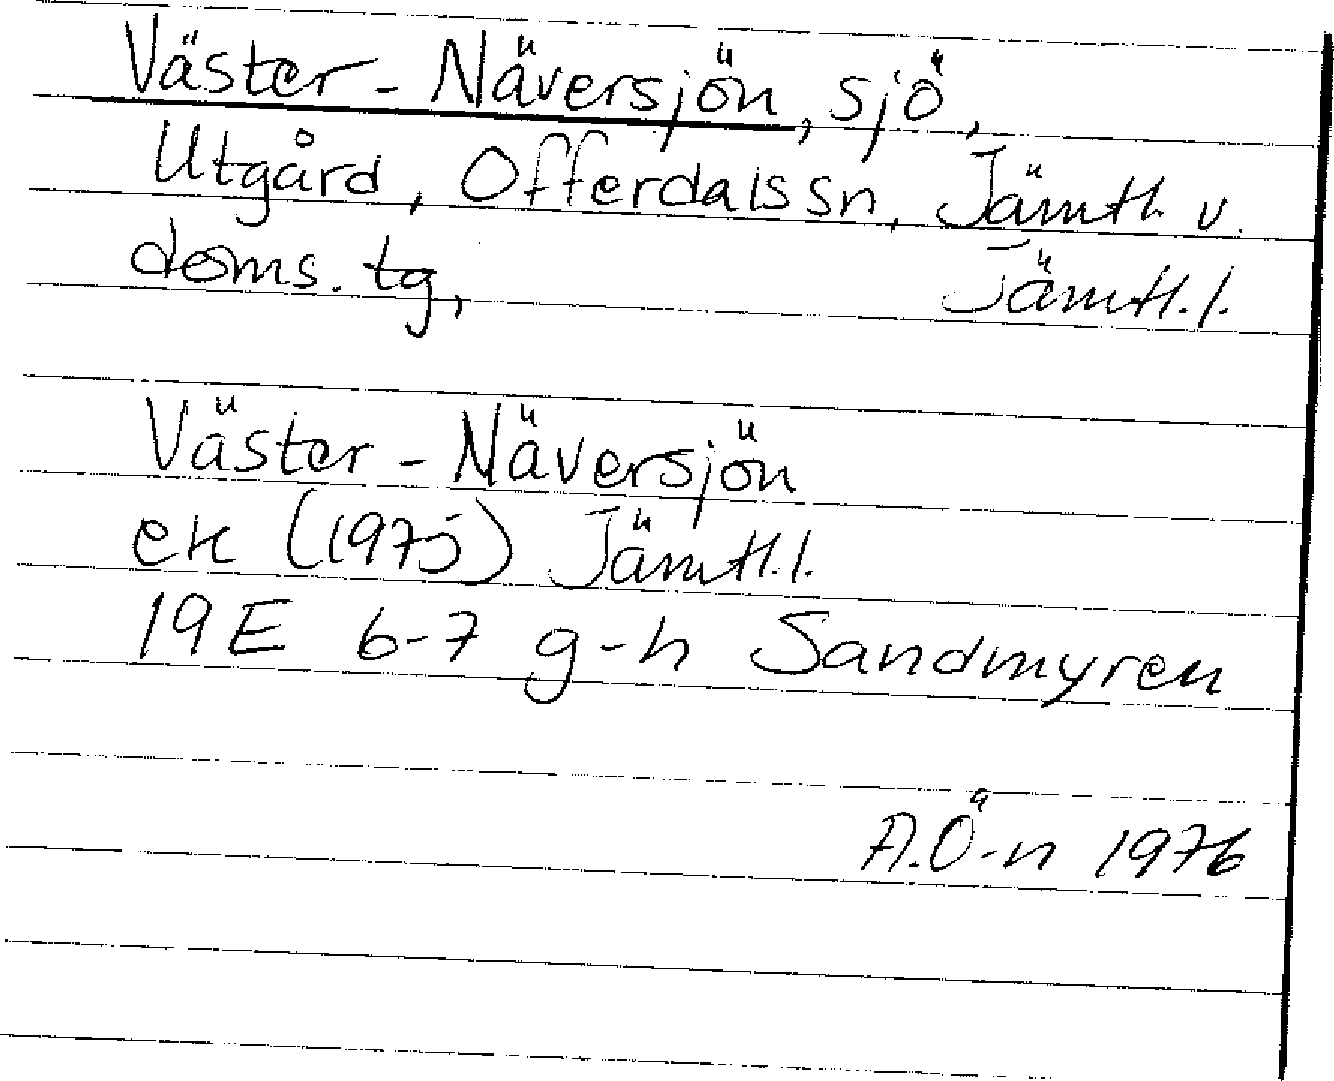 Väster-Näversjön, sjö,
Utgård, Offerdals sn, Jämtl. v.
doms. tg, Jämtl.l.
Väster-Näversjön
ek (1975) Jämtl.l.
19E 6-7 g-h Sandmyren
A.Ö-n 1976